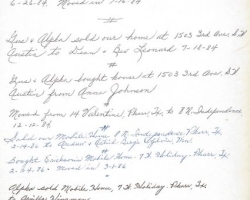 6-25-84. Moved in 7-18-84
#
Gus & Alpha sold our home at 1503 3rd Ave. S.W
Austin to Dean & Bev Leonard 7-18-84
#
Gus & Alpha bought home at 1503 3rd Ave. S.W
Austin from Anna Johnson
#
Moved from 14 Valentine, Pharr, Tx to 8 N. Independence
12-12-84
Sold our Mobile Home 8 N. Independence Pharr, Tx.
2-14-86 to
Bought Mobile Home 7 N. Holiday Pharr, Tx.
2-24-86 - Moved in 3-1-86
Alpha sold Mobile Home, 7 N. Holiday - Pharr, Tx.
to